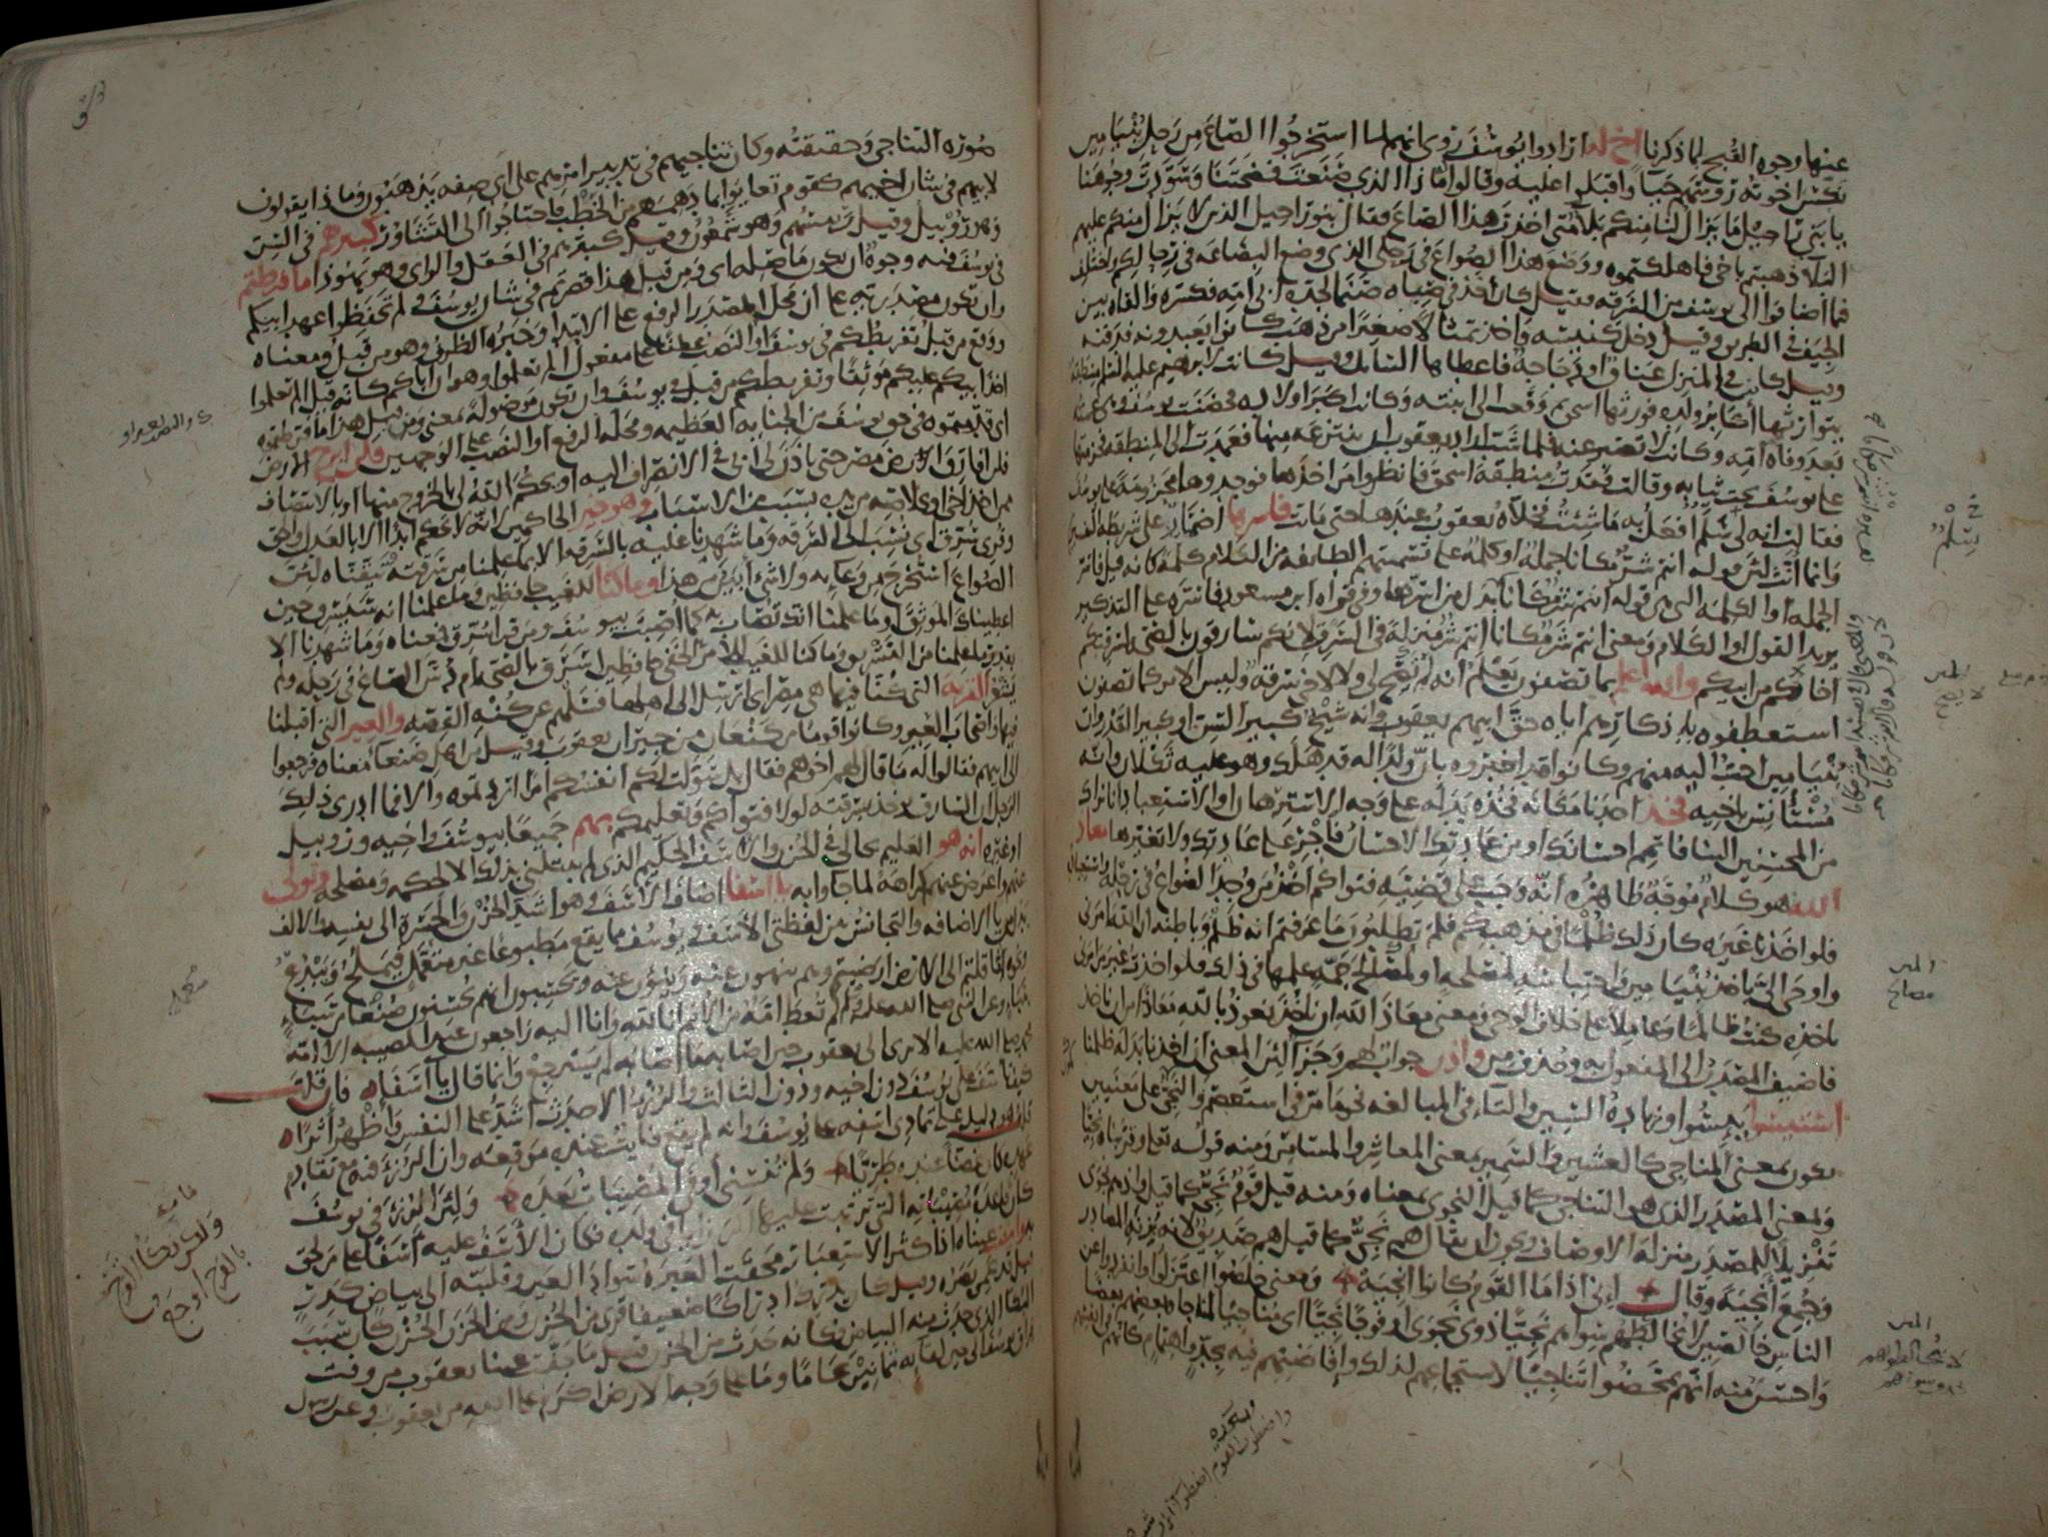 عنها وجوه القبح لما ذكرنا اخ له ارادوا يوسف روى انهم لما استخرجوا الصاع من رحل بنيامين
نكس اخوته رؤسهم حيا واقبلوا عليه وقالوا ما هذا الذي صنعت فضحتنا وسودت وجوهنا
يا بني راحيل ما يزال لنا منكم بلا متى اخذت هذا الصاع فقال بنو راحيل الذين لا يزال منكم عليهم
البلا ذهبتم باخي فاهلكتموه ووضع هذا الصواع في رحلي الذي وضع البضاعة في رحالكم واختلف
فيما اضافوا الى يوسف من السرقه فقيل كان اخذ في صباه صنما لجده ابي امه فكسره والقاه بين
الجيف في الطريق وقيل دخل كنيسه واخذ تمثالا صغيرا من ذهب كانوا يعبدونه فدفنه
وقيل كانت في المنزل عناق او دجاجة فاعطاها السائل وقيل كانت لابرهيم عليه السلم منطقة
يتوارثها اكابر ولده فورثها اسحق ثم وقعت الى ابنته وكانت اكبر اولاده فحضنت يوسف وهي عمته
بعد وفاة امه وكانت لا تصبر عنه فلما شب اراد يعقوب ان ينتزعه منها فعمدت الى المنطقة فحزمتها
على يوسف تحت ثيابه وقالت فقدت منطقة اسحق فانظروا من اخذها فوجدوها محزومة على يوسف
فقالت انه لي سلم افعل به ما شئت فخلاه يعقوب عندها حتى ماتت فاسرها اضمار على شريطة التفسير
وانما انث لان قوله انتم شر مكانا جملة او كلمة على تسميتهم الطائفه من الكلام كلمة كانه قيل فاسر
الجملة او الكلمة التي هي قوله انتم شر مكانا بدل من اسرها وفي قراة ابن مسعود فاسره على التذكير
يريد القول او الكلام ومعنى انتم شر مكانا انتم شر منزلة في السرق لانكم سارقون بالصحة لسرقتكم
اخاكم من ابيكم والله اعلم بما تصفون يعلم انه لم يصح لي ولا لاخي سرقة وليس الامر كما تصفون
استعطفوه باذكارهم اياه حق ابيهم يعقوب وانه شيخ كبير السن او كبير القدر وان
بنيامين احب اليه منهم وكانوا قد اخبروه بان ولدا له قد هلك وهو عليه ثكلان وانه
مستأنس باخيه فخذ احدنا مكانه فخذه بدله على وجه الاسترهان او الاستعباد انا نراك
من المحسنين الينا فاتمم احسانك او من عادتك الاحسان فاجر على عادتك ولا تغيرها معاذ
الله هو كلام موجه ظاهره انه وجب على قضيه فتواكم اخذ من وجد الصواع في رحله واستعباده
فلو اخذنا غيره كان ذلك ظلما في مذهبكم فلم تطلبون ما عرفتم انه ظلم وباطنه ان الله امرني
واوحى الي باخذ بنيامين واحتباسه لمصلحة او لمصالح جمة علمها في ذلك فلو اخذت غير من امرني
باخذه كنت ظالما وعاملا على خلاف الوحي ومعنى معاذ الله ان ناخذ نعوذ بالله معاذا من ان ناخذ
فاضيف المصدر الى المفعول به وحذف من واذن جواب لهم وجزآ لان المعنى ان اخذنا بدله ظلمنا
استيئسوا يئسوا وزيادة السين والتاء في المبالغه نحو ما مر في استعصم والنجي على معنيين
يكون بمعنى المناجي كالعشير والسمير بمعنى المعاشر والمسامر ومنه قوله تعالى وقربناه نجيا
وبمعنى المصدر الذي هو التناجي كما قيل النجوى بمعناه ومنه قيل قوم نجي كما قيل واذ هم نجوى
تنزيلا للمصدر منزلة الاوصاف ويجوز ان يقال هم نجي كما قيل هم صديق لانه بزنة المصادر
وجمع انجية وقال اني اذا ما القوم كانوا انجيه ومعنى خلصوا اعتزلوا وانفردوا عن
الناس خالصين لا يخالطهم سواهم نجيا ذوي نجوى او فوجا نجيا اي مناجيا لمناجاة بعضهم بعضا
واحسن منه انهم تمحضوا تناجيا لاستجماعهم لذلك وافاضتهم فيه بجد واهتمام كانهم في انفسهم
صورة التناجي وحقيقته وكان تناجيهم في تدبير امرهم على اي صفه يذهبون وماذا يقولون
لابيهم في شان اخيهم كقوم تعايوا بما دهمهم من الخطب فاحتاجوا الى التشاور كبيرهم في السن
وهو روبيل وقيل رئيسهم وهو شمعون وقيل كبيرهم في العقل والراي وهو يهوذا ما فرطتم
في يوسف فيه وجوه ان يكون ما صلة اي ومن قبل هذا قصرتم في شان يوسف ولم تحفظوا عهد ابيكم
وان تكون مصدرية على ان محل المصدر الرفع على الابتدا وخبره الظرف وهو من قبل ومعناه
ووقع من قبل تفريطكم في يوسف او النصب عطفا على مفعول الم تعلموا وهو ان اباكم كانه قيل الم تعلموا
اخذ ابيكم عليكم موثقا وتفريطكم من قبل في يوسف وان تكون موصولة بمعنى ومن قبل هذا ما فرطتموه
اي قدمتموه في حق يوسف من الجناية العظيمه ومحله الرفع او النصب على الوجهين فلن ابرح الارض
فلن افارق ارض مصر حتى ياذن لي ابي في الانصراف اليه او يحكم الله لي بالخروج منها او بالانتصاف
ممن اخذ اخي او بخلاصه من يده بسبب من الاسباب وهو خير الحاكمين لانه لا يحكم ابدا الا بالعدل والحق
وقرئ سرق اي نسب الى السرقه وما شهدنا عليه بالسرقه الا بما علمنا من سرقته وتيقناه لان
الصواع استخرج من وعايه ولا شيء ابين من هذا وما كنا للغيب حافظين وما علمنا انه سيسرق حين
اعطيناك الموثق او ما علمنا انك تصاب به كما اصبت بيوسف ومن قرا سرق فمعناه وما شهدنا الا
بقدر ما علمنا من التسريق وما كنا للغيب للامر الخفي حافظين اسرق بالصحة ام دس الصاع في رحله ولم
يشعر القرية التي كنا فيها هي مصر اي ارسل الى اهلها فسلهم عن كنه القصه والعير التي اقبلنا
فيها واصحاب العير وكانوا قوما من كنعان من جيران يعقوب وقيل من اهل صنعا معناه فرجعوا
الى ابيهم فقالوا له ما قال لهم اخوهم فقال بل سولت لكم انفسكم امرا اردتموه والا فما ادرى ذلك
الرجل ان السارق يوخذ بسرقته لولا فتواكم وتعليمكم بهم جميعا بيوسف واخيه وروبيل
او غيره انه هو العليم بحالي في الحزن والاسف الحكيم الذي لم يبتلني بذلك الا لحكمة ومصلحه وتولى
عنهم واعرض عنهم كراهة لما جاوا به يا اسفا اضاف الاسف وهو اشد الحزن والحسرة الى نفسه والالف
بدل من يا الاضافه والتجانس بين لفظتي الاسف ويوسف مما يقع مطبوعا غير متعمل فيملح ويبدع
ونحوه اثاقلتم الى الارض ارضيتم وهم ينهون عنه وينؤن عنه ويحسبون انهم يحسنون صنعا من سبا
بنبا وعن النبي صلى الله عليه وسلم لم تعط امة من الامم انا لله وانا اليه راجعون عند المصيبه الا امة
محمد صلى الله عليه الا ترى الى يعقوب حين اصابه ما اصابه لم يسترجع وانما قال يا اسفاه فان قلت
كيف تاسف على يوسف دون اخيه ودون الثالث والرزء الاحدث اشد على النفس واظهر اثرا
قلت هو دليل على تمادي اسفه على يوسف وانه لم يقع فايت عنده موقعه وان الرزء فيه مع تقادم
عهده كان غضا عنده طريا ولم تنسني اوفى المصيبات بعده ولان الرزء في يوسف
كان قاعدة مصيباته التي ترتبت عليها الرزايا في ولده فكان الاسف عليه اسفا على من لحق
به وابيضت عيناه اذا كثر الاستعبار محقت العبرة سواد العين وقلبته الى بياض كدر
قيل قد عمي بصره وقيل كان يدرك ادراكا ضعيفا قرئ من الحزن ومن الحزن الحزن كان سبب
البكا الذي حدث منه البياض فكانه حدث من الحزن قيل ما جفت عينا يعقوب من وقت
فراق يوسف الى حين لقايه ثمانين عاما وما على وجه الارض اكرم على الله من يعقوب وعن رسول